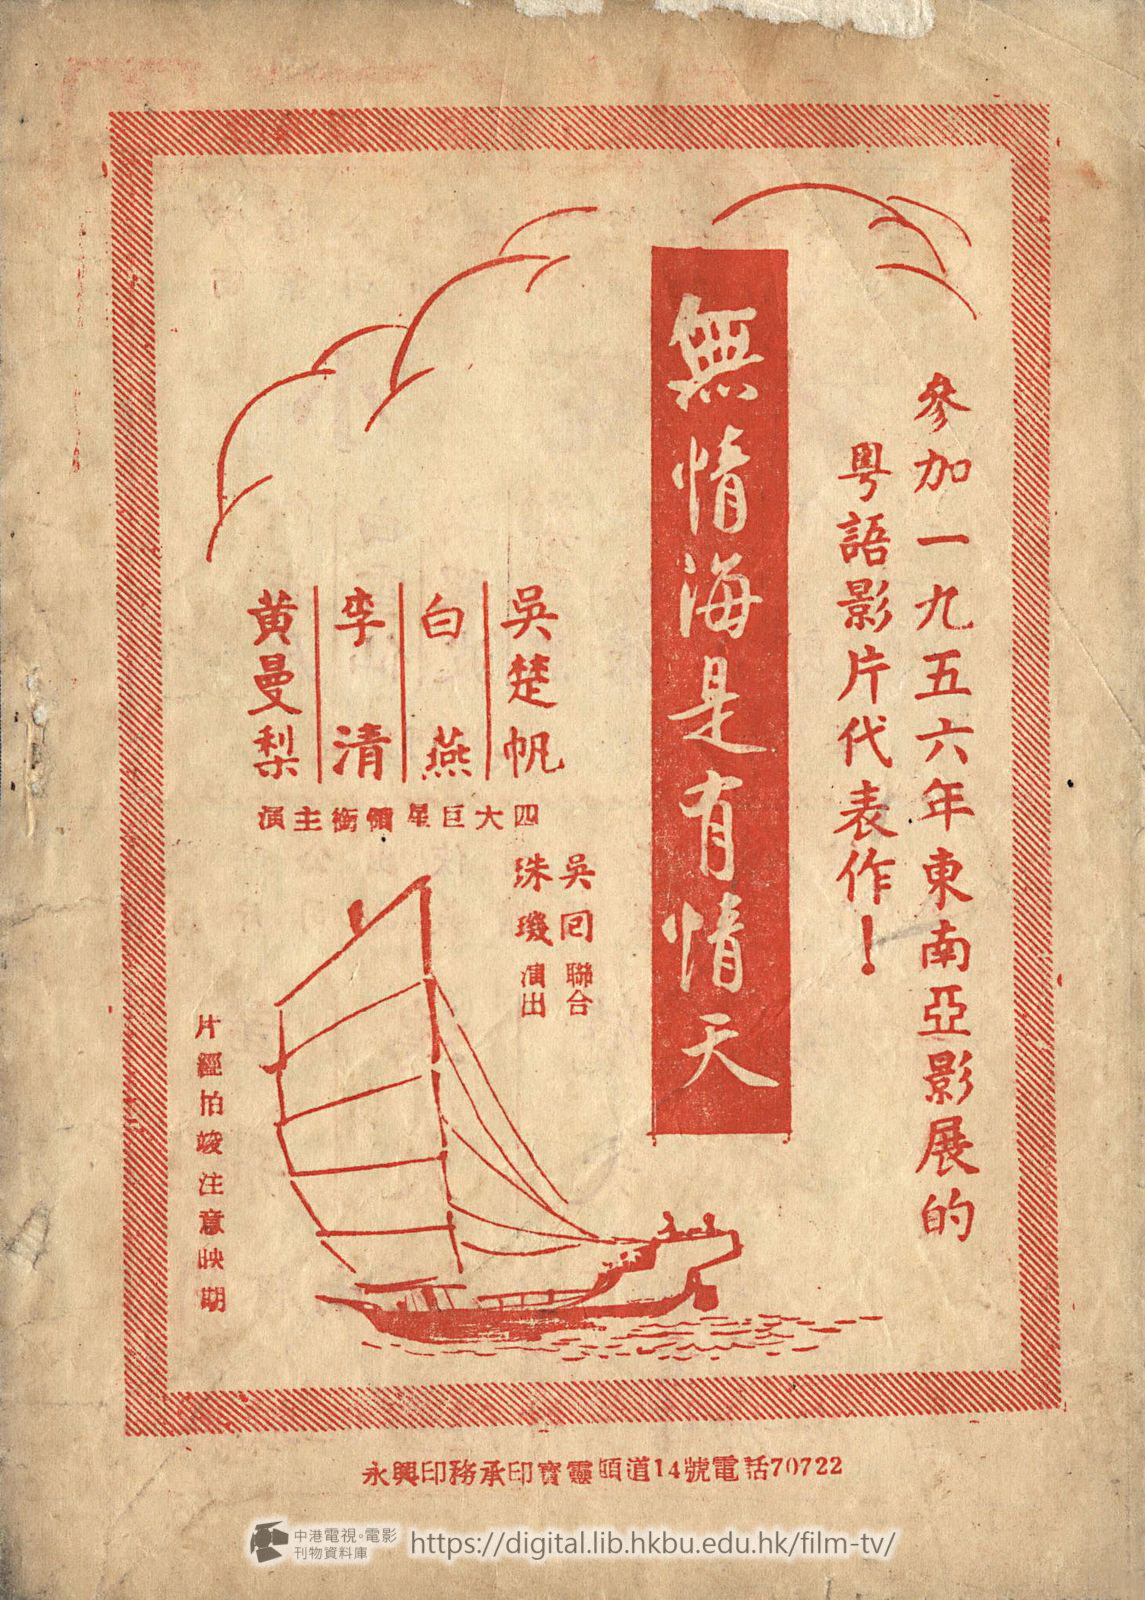 參加一九五六年東南亞影展的
粵語影片代表作！
無情海是有情天
吳楚帆
白燕
李清
黃曼梨
四大巨星領銜主演
吳回聯合
珠璣演出
片經拍竣注意映期
永興印務承印寶靈頓道14號電話70722
中港電視·電影
刊物資料庫
https://digital.lib.hkbu.edu.hk/film-tv/